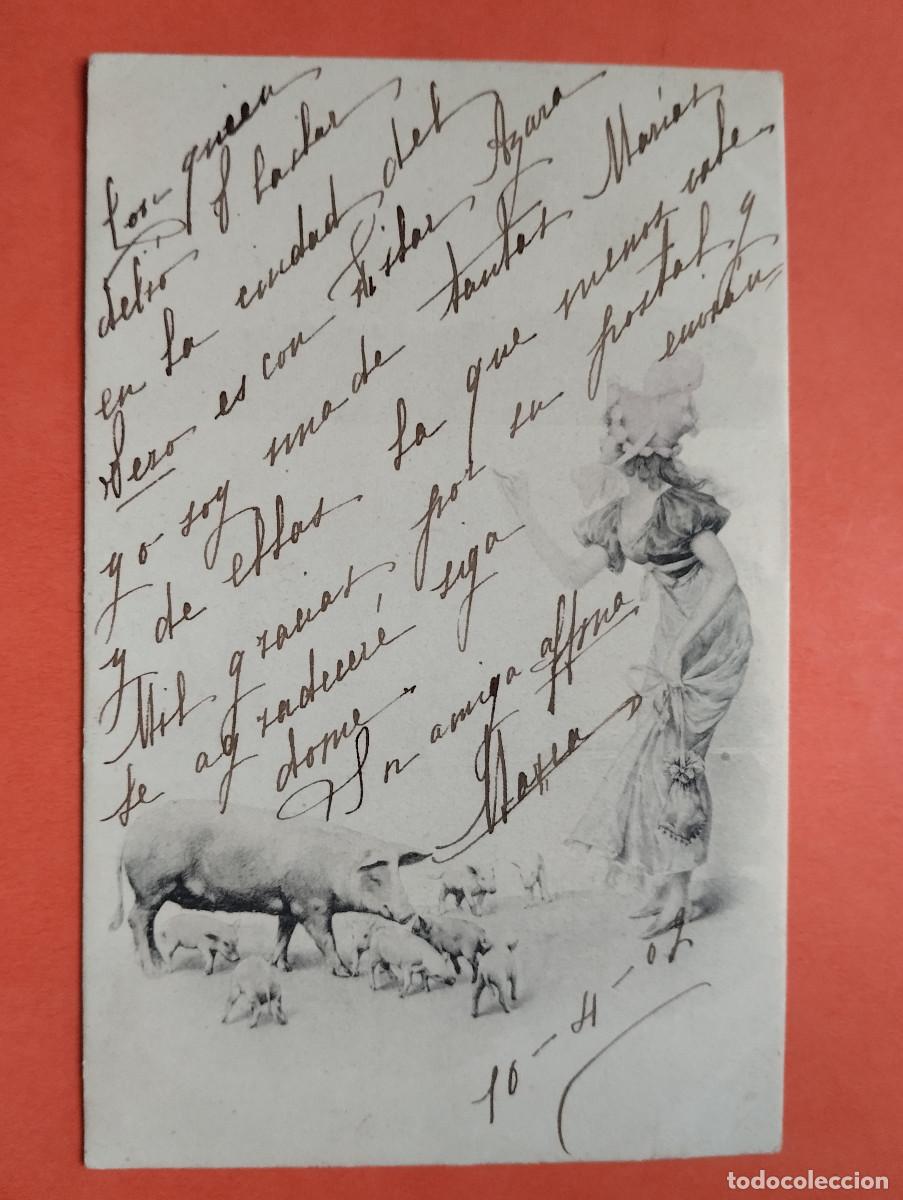 Con quien
delio, S. Lacilar
en la ciudad del
Pero es con Pilar Azara
yo soy una de tantas Marías
y de ellas la que menos vale
Mil gracias por su postal y
le agradeceré siga envián
dome.
Su amiga affma
María
10-4-02
todocoleccion